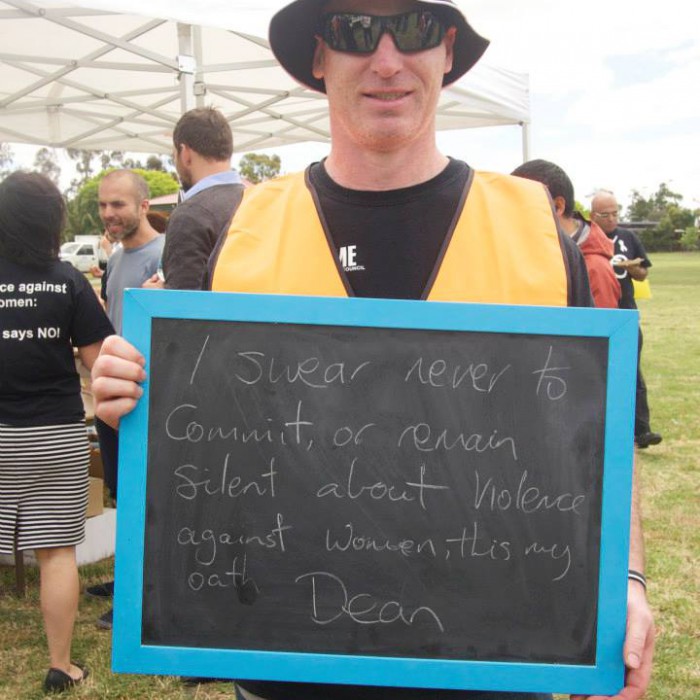 ce against
omen:
says NO!
ME
COUNCIL
I swear never to
Commit, or remain
Silent about Violence
against Women, this my
oath
Dean